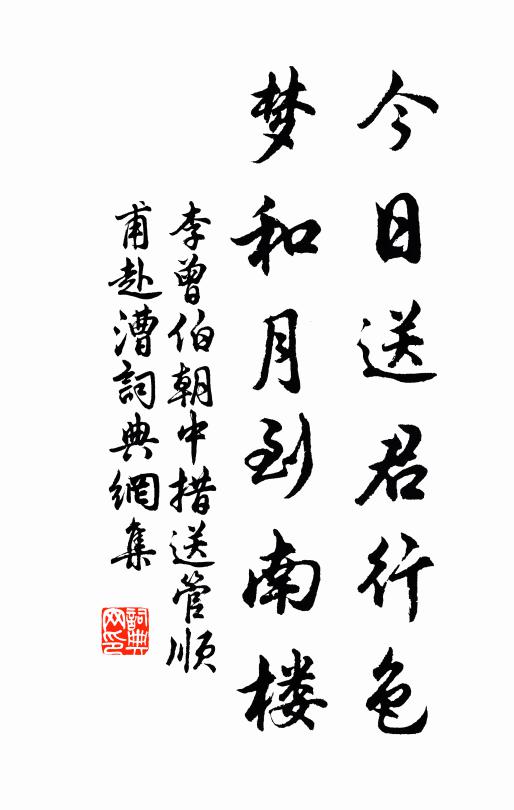 今日送君行色
梦和月到南楼
李曾伯朝中措送管顺
甫赴漕詞典網集
詞典网印